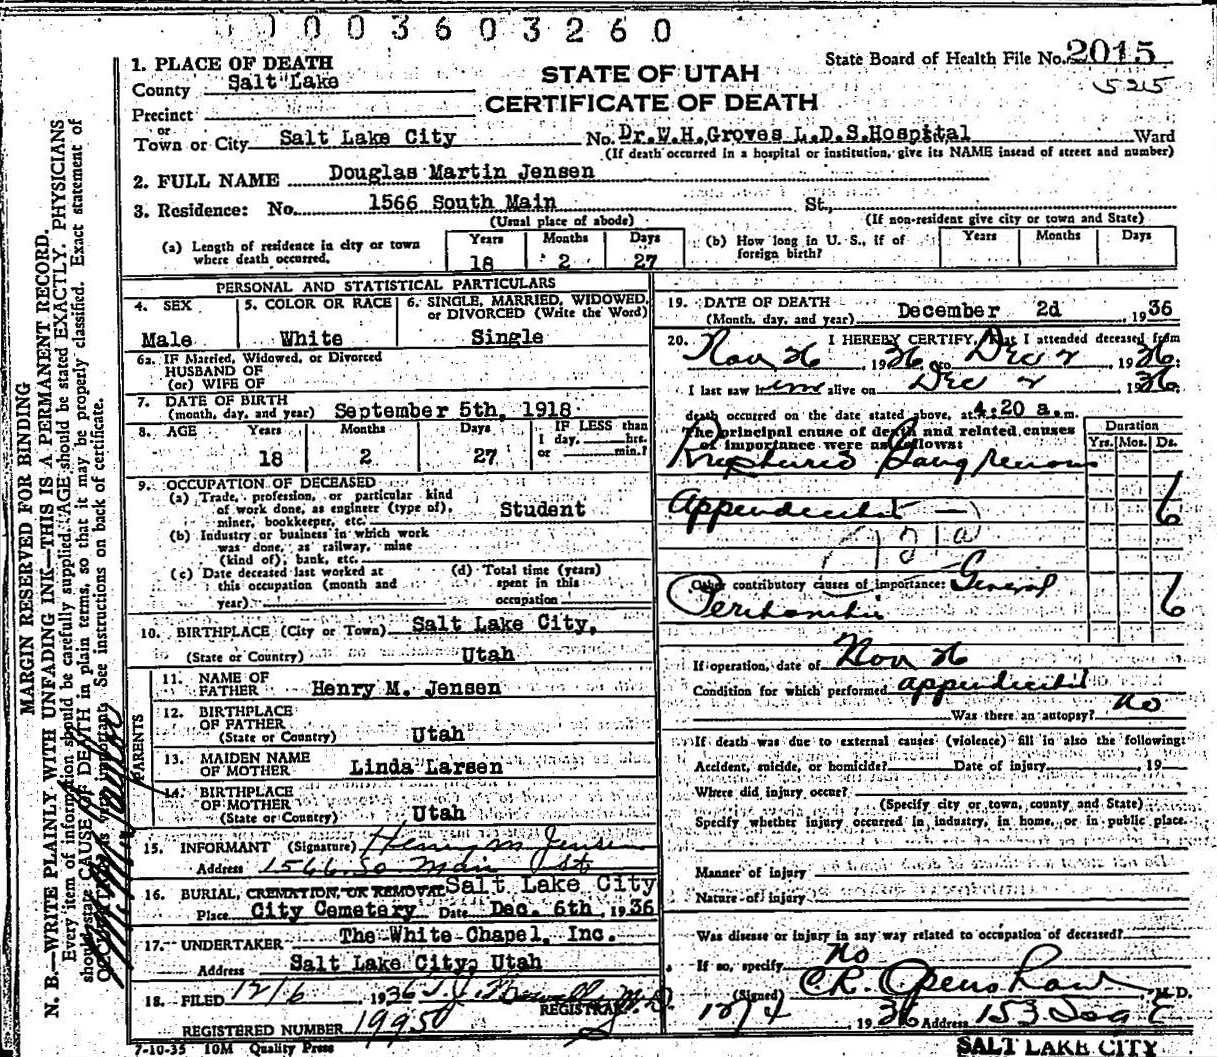 1003603260
State Board of Health File No. 2015
5215
STATE OF UTAH
CERTIFICATE OF DEATH
1. PLACE OF DEATH
County Salt Lake
Precinct
or
Town or City Salt Lake City No. Dr.W.H.Groves L.D.S.Hospital Ward
(If death occurred in a hospital or institution, give its NAME insead of street and number)
2. FULL NAME Douglas Martin Jensen
3. Residence: No. 1566 South Main St.,
(Usual place of abode) (If non-resident give city or town and State)
(a) Length of residence in city or town where death occurred.
Years Months Days
18 2 27
(b) How long in U. S., if of foreign birth?
Years Months Days
PERSONAL AND STATISTICAL PARTICULARS
4. SEX
Male
5. COLOR OR RACE
White
6. SINGLE, MARRIED, WIDOWED,
or DIVORCED (Write the Word)
Single
6a. IF Married, Widowed, or Divorced
HUSBAND OF
(or) WIFE OF
7. DATE OF BIRTH
(month, day, and year) September 5th, 1918
8. AGE Years Months Days IF LESS than
1 day, hrs.
or min.?
18 2 27
9. OCCUPATION OF DECEASED
(a) Trade, profession, or particular kind
of work done, as engineer (type of), Student
miner, bookkeeper, etc.
(b) Industry or business in which work
was done, as railway, mine
(kind of), bank, etc.
(c) Date deceased last worked at
this occupation (month and
year)
(d) Total time (years)
spent in this
occupation
10. BIRTHPLACE (City or Town) Salt Lake City,
(State or Country) Utah
PARENTS
11. NAME OF
FATHER Henry M. Jensen
12. BIRTHPLACE
OF FATHER
(State or Country) Utah
13. MAIDEN NAME
OF MOTHER Linda Larsen
14. BIRTHPLACE
OF MOTHER
(State or Country) Utah
15. INFORMANT (Signature) Henry M Jensen
Address 1566 So Main St
16. BURIAL, CREMATION, OR REMOVAL Salt Lake City
Place City Cemetery Date Dec. 6th, 1936
17. UNDERTAKER The White Chapel, Inc.
Address Salt Lake City, Utah
18. FILED 12/6, 1936
REGISTRAR.
REGISTERED NUMBER 1995
7-10-35 10M Quality Press
19. DATE OF DEATH
(Month, day, and year) December 2d, 1936
20. I HEREBY CERTIFY, That I attended deceased from
Nov 26, 1936 to Dec 2, 1936;
I last saw him alive on Dec 2, 1936
death occurred on the date stated above, at 4:20 a.m.
The principal cause of death and related causes
of importance were as follows:
Duration
Yrs. Mos. Ds.
Ruptured Gangrenous
Appendicitis 6
Other contributory causes of importance: General
Peritonitis 6
If operation, date of Nov 26
Condition for which performed appendicitis
Was there an autopsy? No
If death was due to external causes (violence) fill in also the following:
Accident, suicide, or homicide? Date of injury 19
Where did injury occur?
(Specify city or town, county and State)
Specify whether injury occurred in industry, in home, or in public place.
Manner of injury
Nature of injury
Was disease or injury in any way related to occupation of deceased?
If so, specify No
(Signed) C.R. Openshaw, M. D.
12/4, 1936 Address 153 So
SALT LAKE CITY
MARGIN RESERVED FOR BINDING
N. B.—WRITE PLAINLY WITH UNFADING INK—THIS IS A PERMANENT RECORD.
Every item of information should be carefully supplied. AGE should be stated EXACTLY. PHYSICIANS
should state CAUSE OF DEATH in plain terms, so that it may be properly classified. Exact statement of
See instructions on back of certificate.